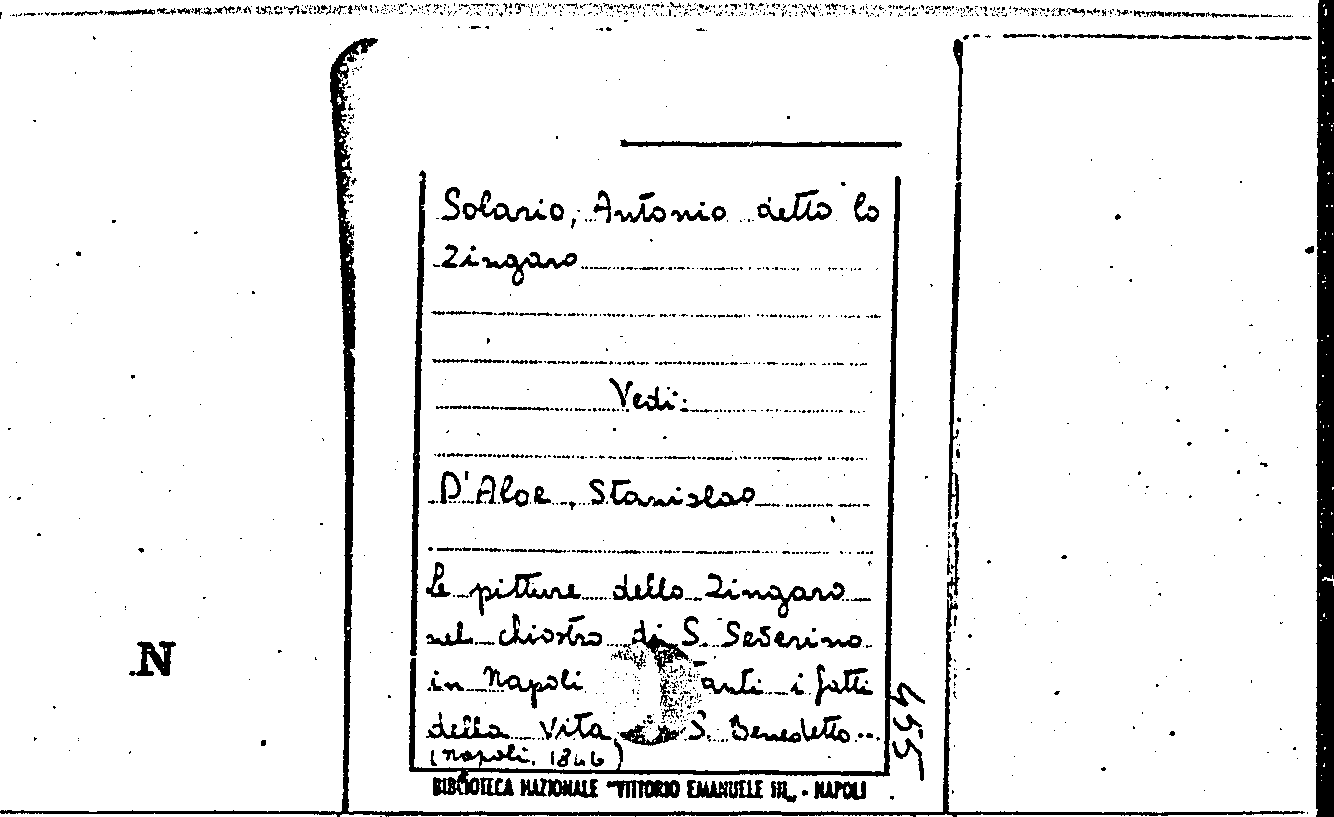 Solario, Antonio detto lo
Zingaro
Vedi:
D'Aloe, Stanislao
Le pitture dello Zingaro
nel chiostro di S. Severino
in Napoli anti i fatti
della Vita S. Benedetto...
(Napoli, 1846)
455
N
BIBLIOTECA NAZIONALE "VITTORIO EMANUELE III" - NAPOLI